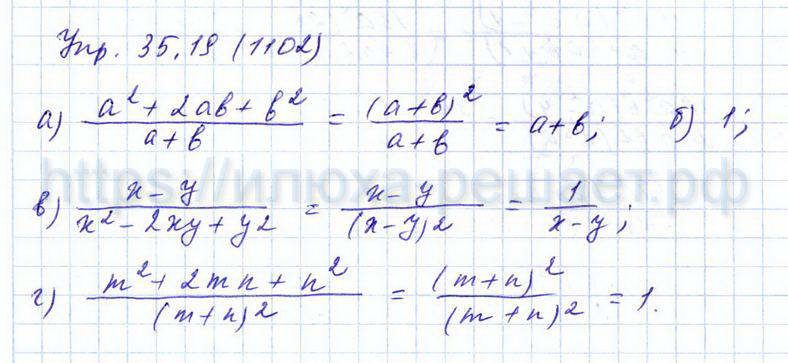 Упр. 35.19 (1102)
а) (a² + 2ab + b²)/(a+b) = (a+b)²/(a+b) = a+b; б) 1;
https://илюха-решает.рф
в) (x-y)/(x² - 2xy + y²) = (x-y)/(x-y)² = 1/(x-y);
г) (m² + 2mn + n²)/(m+n)² = (m+n)²/(m+n)² = 1.